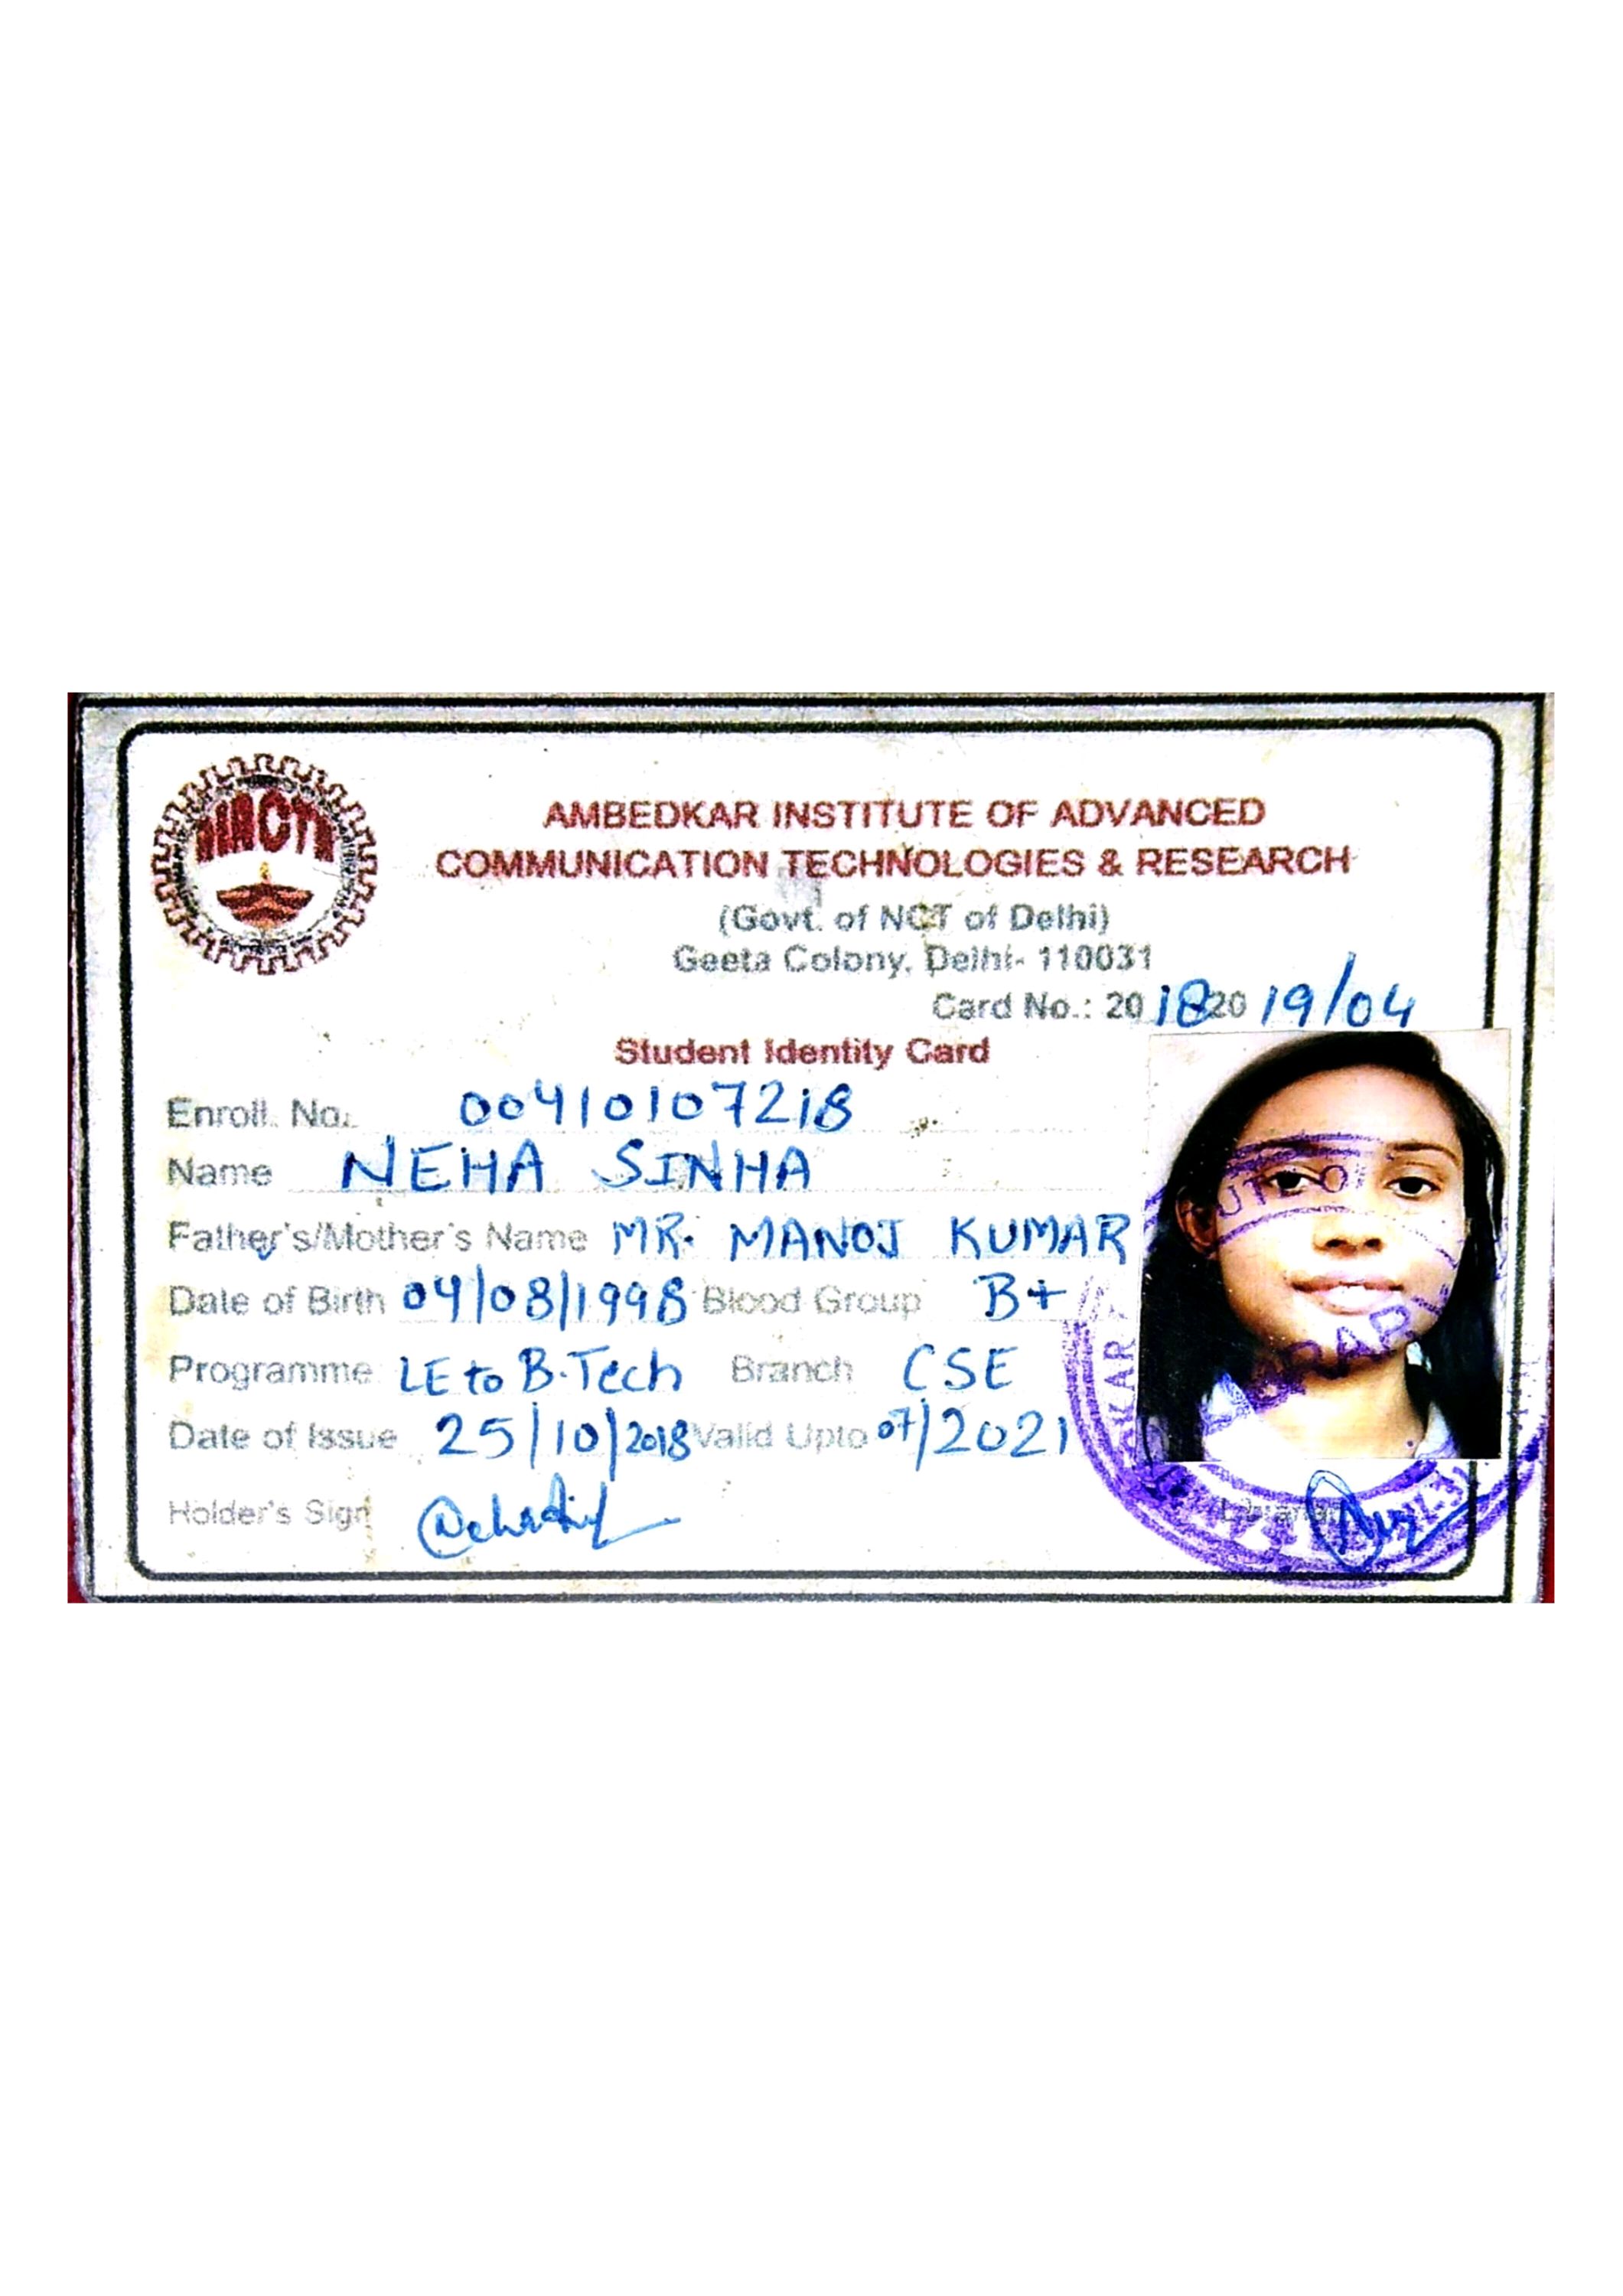 AIACTR
AMBEDKAR INSTITUTE OF ADVANCED
COMMUNICATION TECHNOLOGIES & RESEARCH
(Govt. of NCT of Delhi)
Geeta Colony, Delhi- 110031
Card No.: 20 18 20 19/04
Student Identity Card
Enroll. No. 00410107218
Name NEHA SINHA
Father's/Mother's Name MR. MANOJ KUMAR
Date of Birth 04/08/1998 Blood Group B+
Programme LE to B.Tech Branch CSE
Date of Issue 25/10/2018 Valid Upto 07/2021
Holder's Sign